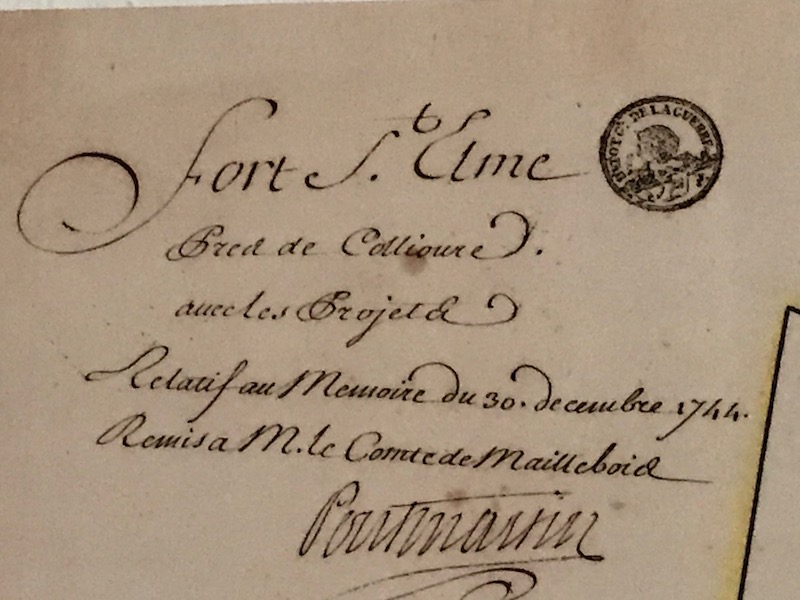 Fort S.t Elme
DEPOT G.ᴬᴸ DE LA GUERRE
Pres de Collioure.
avec les Projets
Relatif au Memoire du 30. decembre 1744.
Remis a M. le Comte de Maillebois
Portmartin